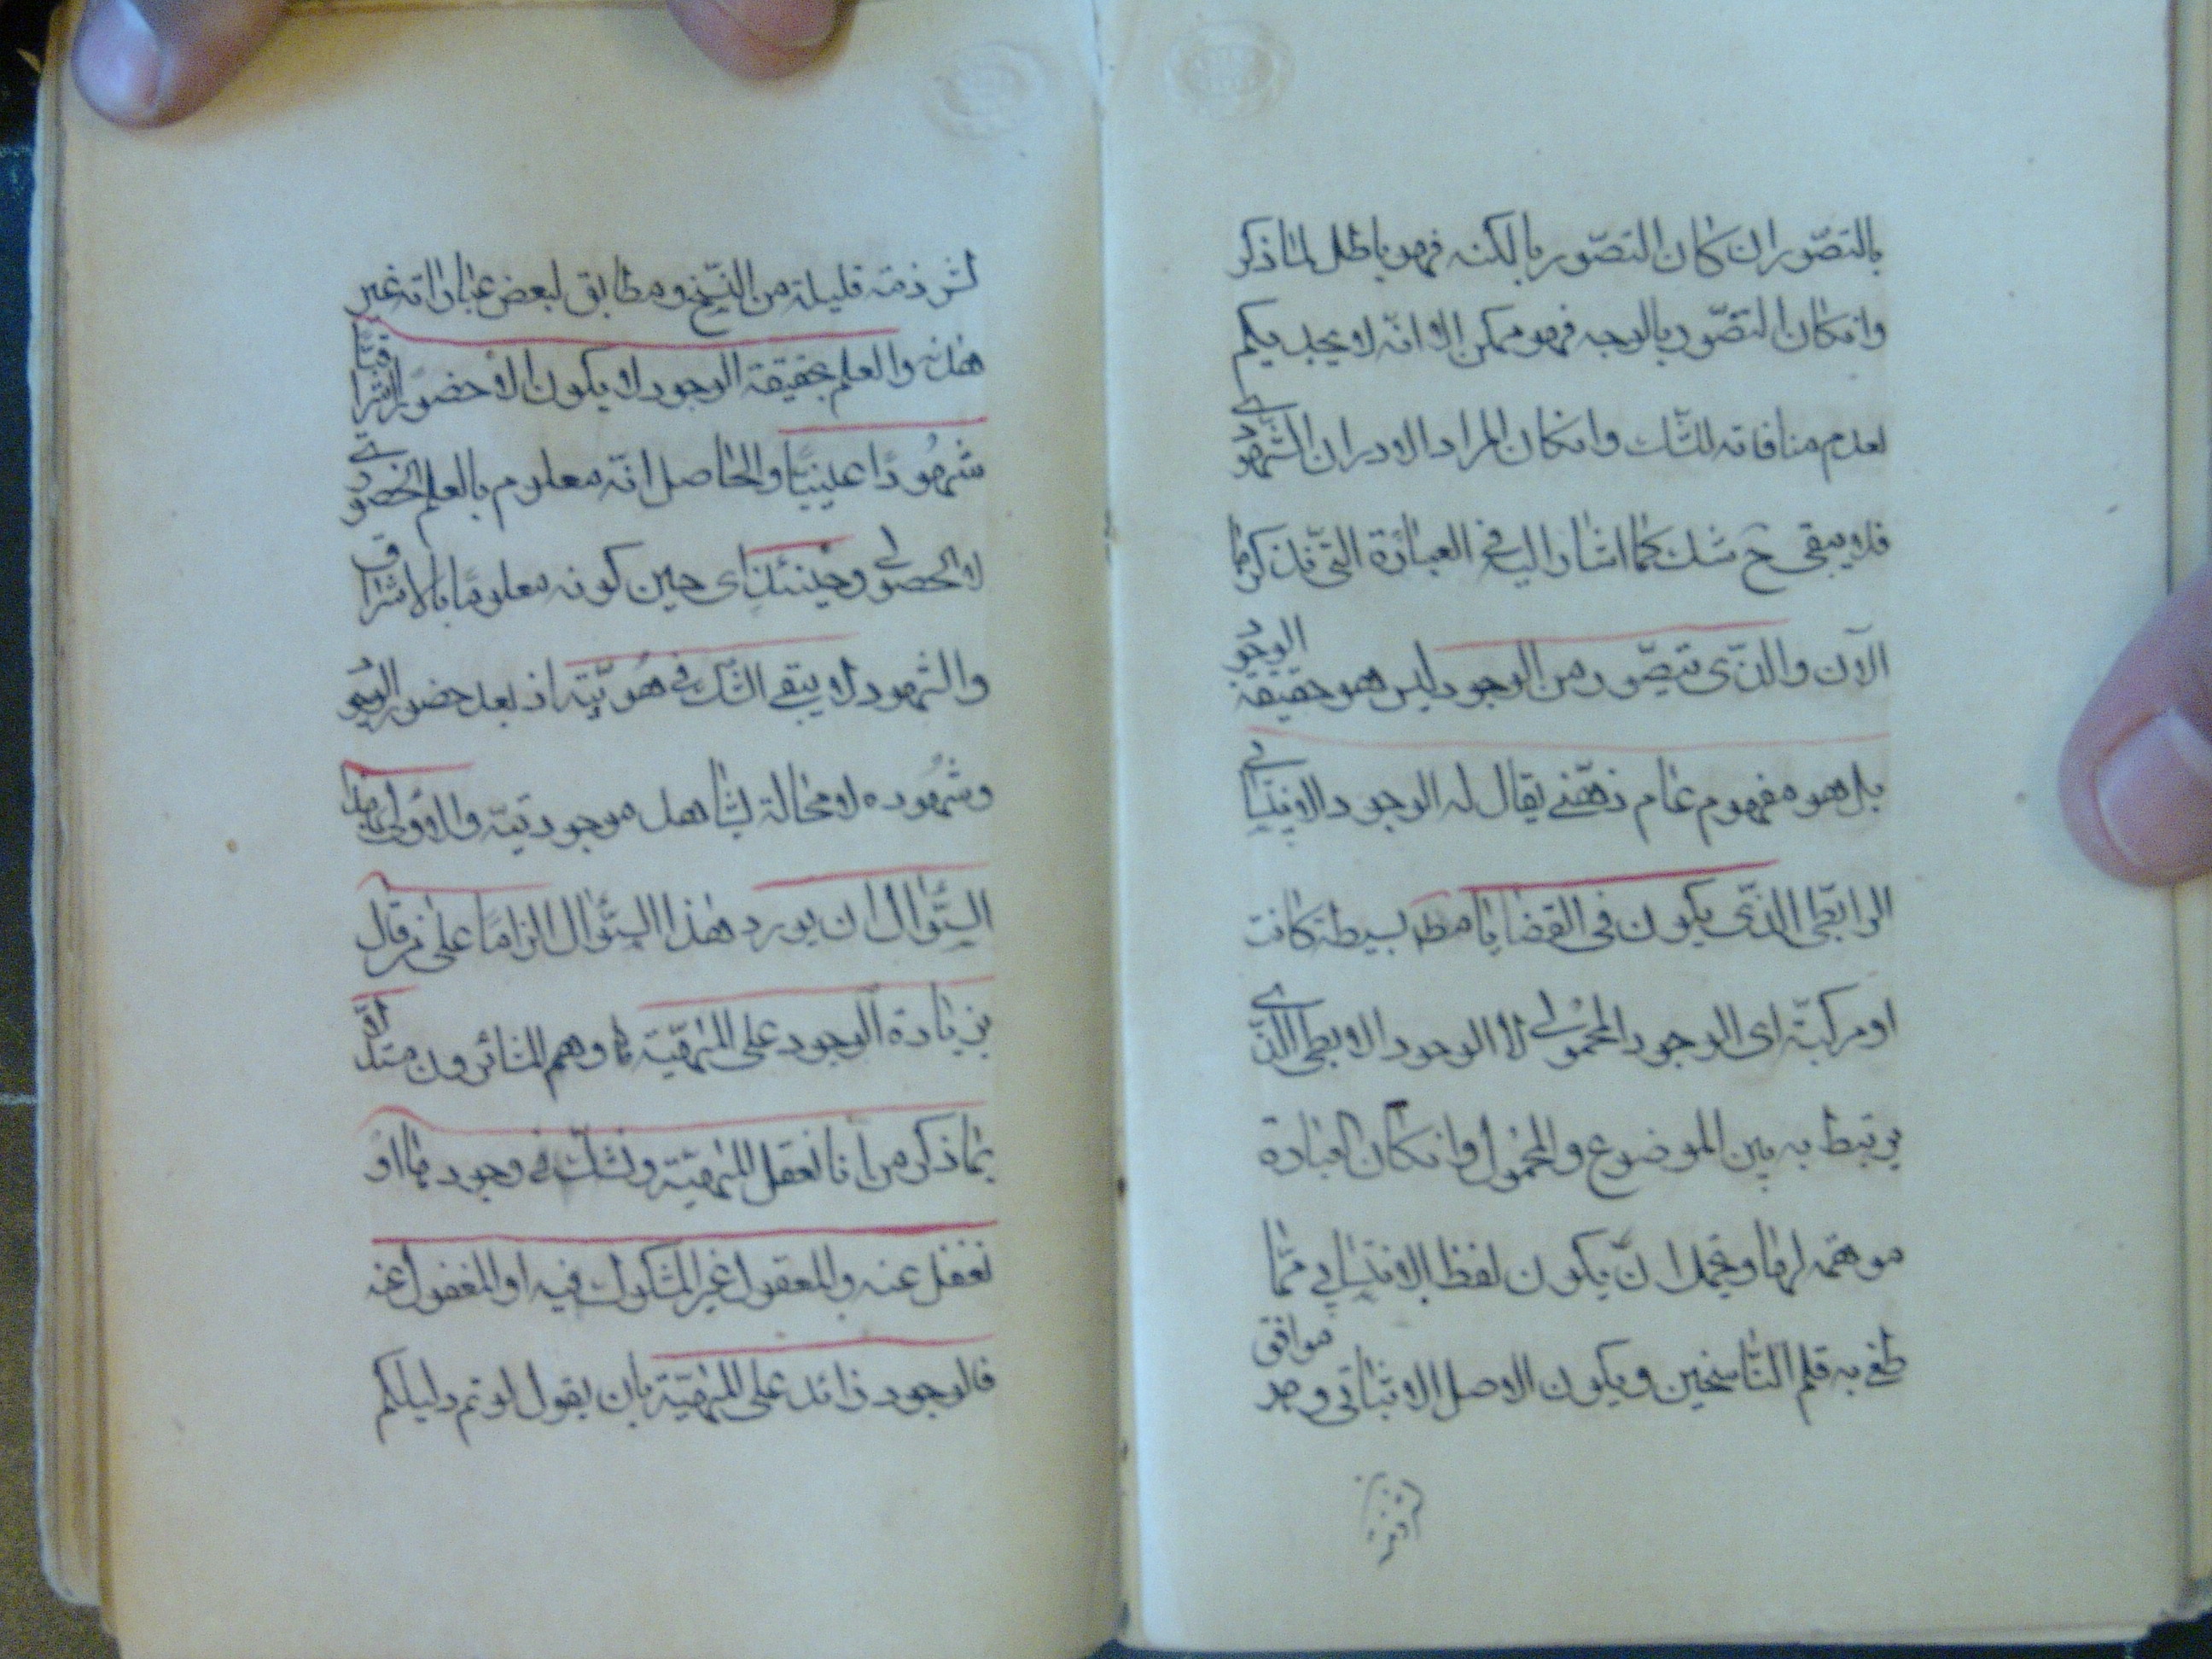 بالتصّور ان كان التصّور بالكنه فهو باطل لما ذكر
وانكان التصّور بالوجه فهو ممكن الا انّه لا يجديكم
لعدم منافاته للشّك وانكان المراد الادراك الشّهودى
فلا يبقى ح شك كما اشار اليه فى العبارة التّى نذكرها
الآن والذّى يتصّور من الوجود ليس هو حقيقة الوجود
بل هو مفهوم عام ذهنّى يقال له الوجود الانتسابى
الرابطى الذّى يكون فى القضايا مط بسيطة كانت
او مركبّة اى الوجود المحمولى لا الوجود الابطى الذّى
يرتبط به بين الموضوع والمحمول وانكان العبارة
موهمه لها ويحتمل ان يكون لفظ الانتسابى ممّا
طغى به قلم النّاسخين ويكون الاصل الاثباتى وهو موافق
لشرذمة قليلة من النّسخ ومطابق لبعض عباراته غير
هذه والعلم بحقيقة الوجود لا يكون الا حضورا اشراقيّا
شهُودًا عينيّا والحاصل انّه معلوم بالعلم الحضورى
لا الحصولى وحينئذٍ اى حين كونه معلومًا بالاشراق
والشهود لا يبقى الشّك فى هُويّته اذ بعد حضور الوجود
وشهُوده لا محالة يشاهد موجوديّته والاولى بهذا
السّؤال ان يورد هذا السّؤال الزامًا على من قال
بزيادة الوجود على المهيّة وهم المشاؤن مستدلا
بما ذكر من انا نعقل المهيّة ونشك فى وجودها او
نغفل عنه والمعقول غير المشكوك فيه او المغفول عنه
فالوجود زائد على المهيّة بان يقول لو تم دليلكم